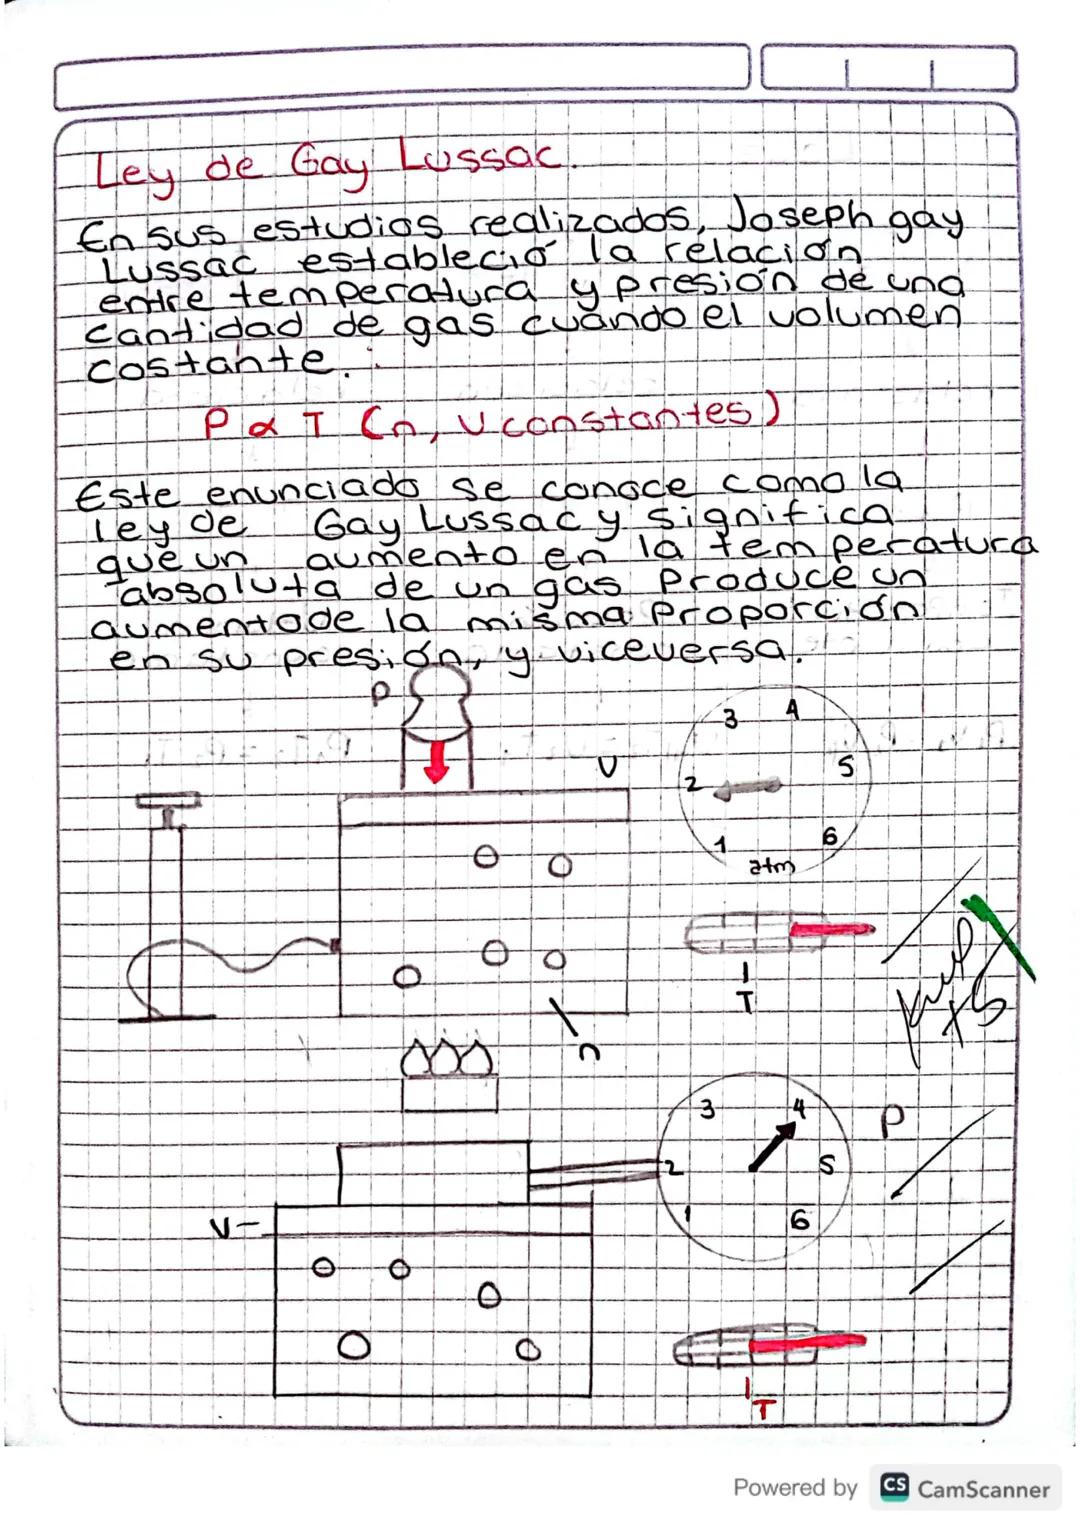 Ley de Gay Lussac.
En sus estudios realizados, Joseph gay
Lussac estableció la relación
entre temperatura y presión de una
cantidad de gas cuando el volumen
costante.
P α T (n, V constantes)
Este enunciado se conoce como la
ley de Gay Lussac y significa
que un aumento en la temperatura
absoluta de un gas produce un
aumento de la misma proporción
en su presión, y viceversa.
P
V
3 4
2 5
1 6
atm
T
n
3 4
P
2 5
1 6
V
T
Powered by CS CamScanner